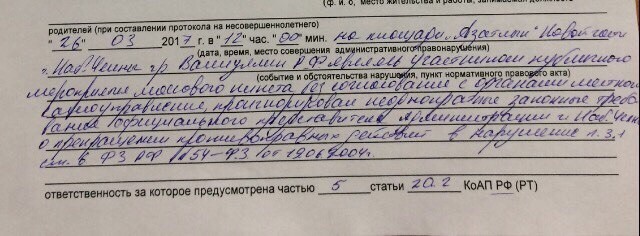 (ф. и о, место жительства и работы, занимаемая должность
родителей (при составлении протокола на несовершеннолетнего)
"26" 03 2017 г. в "12" час. "00" мин. на площади "Азатлык" Новой части
(дата, время, место совершения административного правонарушения)
г. Наб. Челны гр. Валиуллин Р.Ф. участником публичного
(событие и обстоятельства нарушения, пункт нормативного правового акта)
мероприятия массового пикета без согласования с органами местного
самоуправления, проигнорировал неоднократные законные требо-
вания официального представителя администрации г. Наб. Челны
о прекращении противоправных действий в нарушение п. 3.1
ст. 6 ФЗ РФ №54-ФЗ от 19.06.2004г.
ответственность за которое предусмотрена частью 5 статьи 20.2 КоАП РФ (РТ)